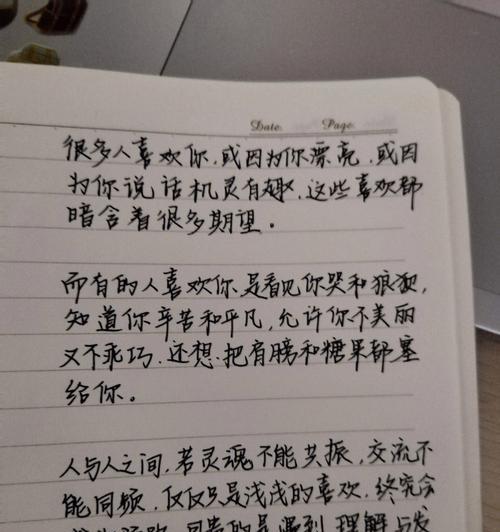 Date. Page.
很多人喜欢你,或因为你漂亮,或因
为你说话机灵有趣,这些喜欢都
暗含着很多期望。
而有的人喜欢你,是看见你哭和狼狈,
知道你辛苦和平凡,允许你不美丽
又不乖巧.还想.把肩膀和糖果都塞
给你。
人与人之间,若灵魂不能共振,交流不
能同频,仅仅只是浅浅的喜欢,终究会
的是遇到理解与